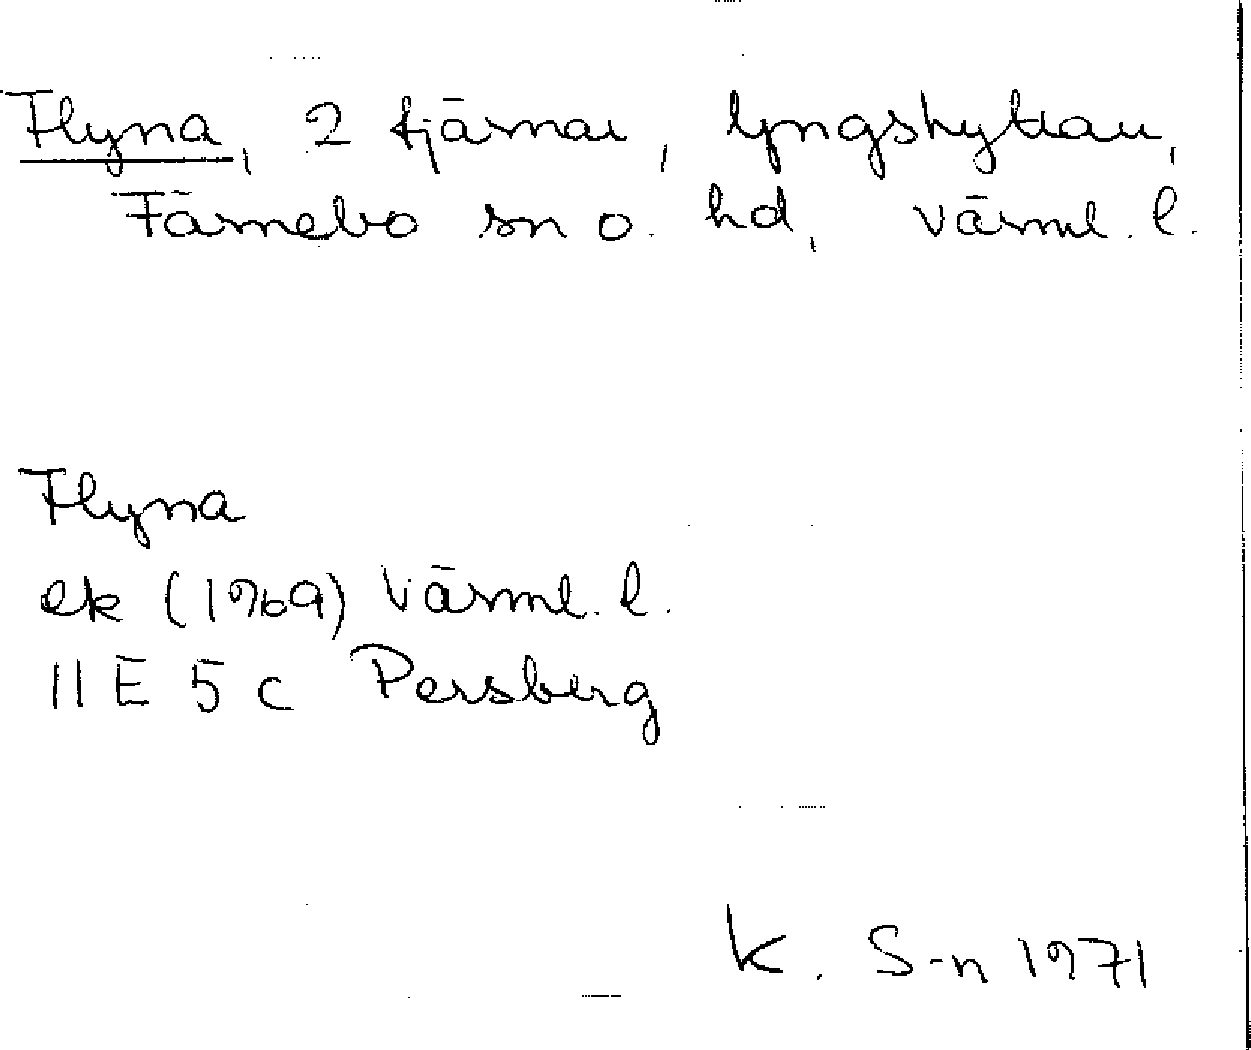 Flyna, 2 tjärnar, Lyngshyttan,
Färnebo sn o. hd, Värml. l.
Flyna
ek (1969) Värml. l.
11 E 5 c Persberg
K. S-n 1971